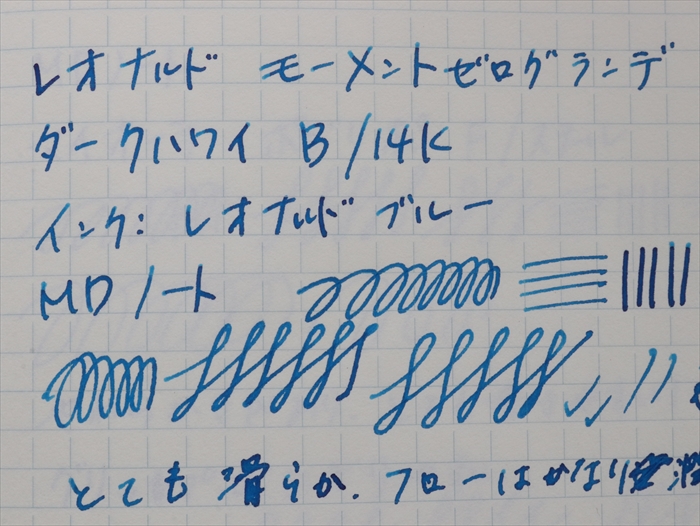 レオナルド モーメントゼログランデ
ダークハワイ B/14K
インク: レオナルド ブルー
MDノート
とても 滑らか. フローはかなり